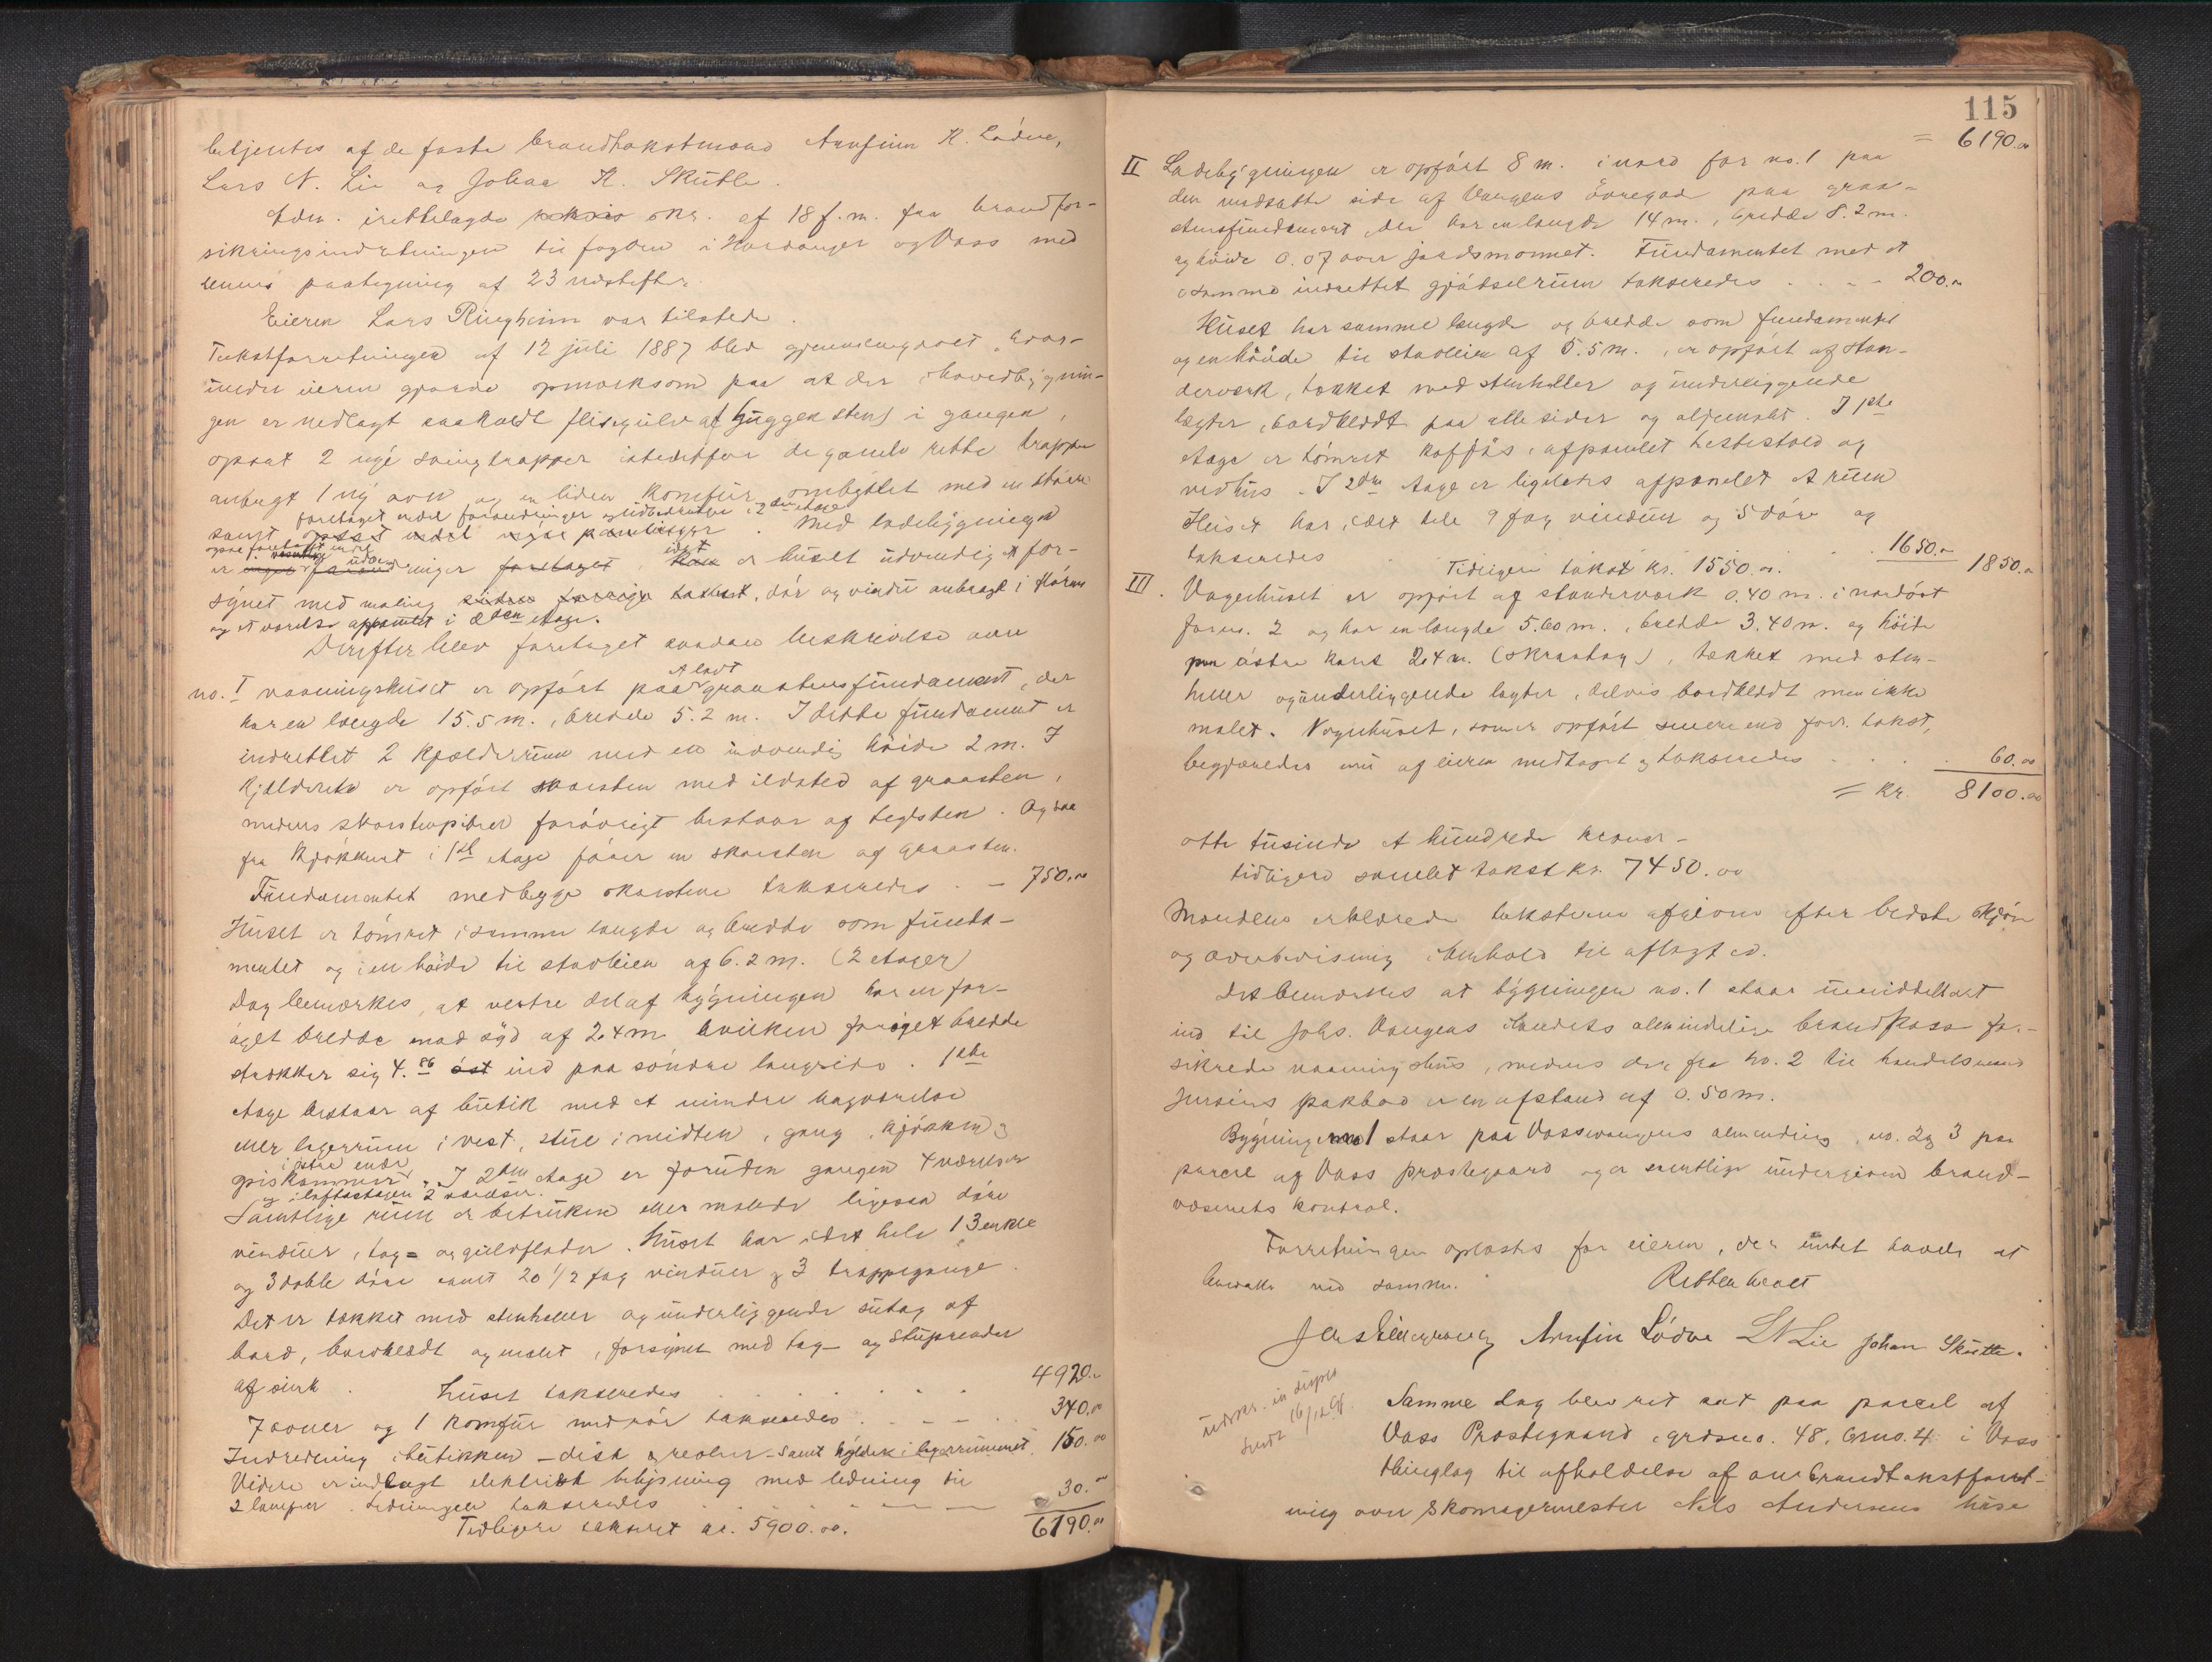 betjentes af de faste brandtakstmænd Arnfinn K. Lødve,
Lars N. Lie og Johan K. Skutle.
Adm. irettelagde skr. af 18 f.m. fra brandfor-
sikringsindretningen til fogden i Hardanger og Voss med
dennes paategning af 23 næstefter.
Eieren Lars Ringheim var tilstede.
Takstforretningen af 12 juli 1887 blev gjennemgaaet, hvor-
under eieren gjorde opmærksom paa at der i hovedbygnin-
gen er nedlagt saakaldt flisegulv (af huggen sten) i gangen,
opsat 2 nye svingtrapper istedetfor de gamle rette trapper
anbragt 1 ny ovn og en liden komfur ombyttet med en større
foretaget endel forandringer og udbedringer i 2den etage
samt opsat endel nye paneliger. Med ladebygningen
ogsaa foretaget endel
er forandringer foretaget. er huset udvendigt for-
synet med maling siden forrige takst, dør og vindu anbragt i
og et værelse afpanelt i 2den etage.
Derefter blev foretaget saadan beskrivelse over
no. I vaaningshuset er opført paa et lavt graastensfundament, der
har en længde 15.5 m., bredde 5.2 m. I dette fundament er
indrettet 2 kjælderrum med en indvendig høide 2 m. I
kjælderen er opført skorsten med ildsted af graasten,
medens skorstenspiben forøvrigt bestaar af teglsten. Ogsaa
fra kjøkkenet i 1ste etage fører en skorsten af graasten.
Fundamentet med begge skorstene takseredes . - 750.00
Huset er tømret i samme længde og bredde som funda-
mentet og i en høide til stavleien af 6.2 m. (2 etager)
Dog bemærkes, at vestre del af bygningen har en for-
øget bredde mod syd af 2.4 m hvilken forøget bredde
strækker sig 4.86 øst ind paa søndre langside. 1ste
etage bestaar af butik med et mindre bagværelse
eller lagerrum i vest, stue i midten, gang, kjøkken og
i østre ende
spiskammer. I 2den etage er foruden gangen 4 værelser
og i loftsetagen 2 værelser.
Samtlige rum er betrukne eller malede ligesaa døre
vinduer, tag- og gulvflader. Huset har i det hele 13 enkle
og 3 doble døre samt 20 1/2 fag vinduer og 3 trappegange.
Det er tækket med stenheller og underliggende sutag af
bord, bordklædt og malet, forsynet med tag- og
af sink. Huset takseredes . . . . . . 4920.-
7 ovner og 1 komfur med rør takseredes . - - . . 340.00
Indredning i butikken - disk og reoler - samt hylder i lagerrummet. 150.00
Videre er indlagt elektrisk belysning med ledning til
2 lamper. Ledningen takseredes . . . . . 30.00
Tidligere takseret kr. 5900.00. 6190.00
115
= 6190.00
II Ladebygningen er opført 8 m. i nord for no. 1 paa
den modsatte side af Vangens øvregade paa graa-
stensfundament, der har en længde 14 m., bredde 8.2 m.
og høide 0.07 over jordsmonnet. Fundamentet med et
i samme indrettet gjødselrum takseredes . . - - 200.00
Huset har samme længde og bredde som fundamentet
og en høide til stavleien af 5.5 m., er opført af stan-
derværk, tækket med stenheller og underliggende
lægter, bordklædt paa alle sider og oljemalt. I 1ste
etage er tømret kofjøs, afpanelet hestestald og
vedhus. I 2den etage er ligeledes afpanelet et rum
Huset har i det hele 9 fag vinduer og 5 døre og
takseredes . . . . 1650.00
Tidligere takst kr. 1550.00. 1850.00
III. Vognhuset er opført af standerværk 0.40 m. i nordøst
for no. 2 og har en længde 5.60 m., bredde 3.40 m. og høide
paa østre kant 2.4 m. (skraatag), tækket med sten-
heller og underliggende lægter, delvis bordklædt men ikke
malet. Vognhuset, som er opført senere end forr. takst,
begjæredes nu af eieren medtaget og takseredes . . . . 60.00
= kr. 8100.00
otte tusinde et hundrede kroner -
tidligere samlet takst kr. 7450.00
Mændene erklærede taksterne afgivne efter bedste skjøn
og overbevisning i henhold til aflagt ed.
Det bemærkes at bygningen no. 1 staar umiddelbart
ind til Johs. Vangens i landets almindelige brandkasse for-
sikrede vaaningshus, medens der fra no. 2 til handelsmand
pakbod er en afstand af 0.50 m.
Bygning no 1 staar paa Vossevangens almending, no. 2 og 3 paa
parcel af Voss prestegaard og er samtlige undergivne brand-
væsenets kontrol.
Forretningen oplæstes for eieren, der intet havde at
bemærke ved samme. Retten hævet
Arnfin Lødve LNLie Johan Skutle.
Udskr. in duplo
16/12
Samme dag blev ret sat paa parcel af
Voss Prestegaard, grdsno. 48, brno. 4 i Voss
thinglag til afholdelse af ombrandtakstforret-
ning over skomagermester Nils Andersens huse